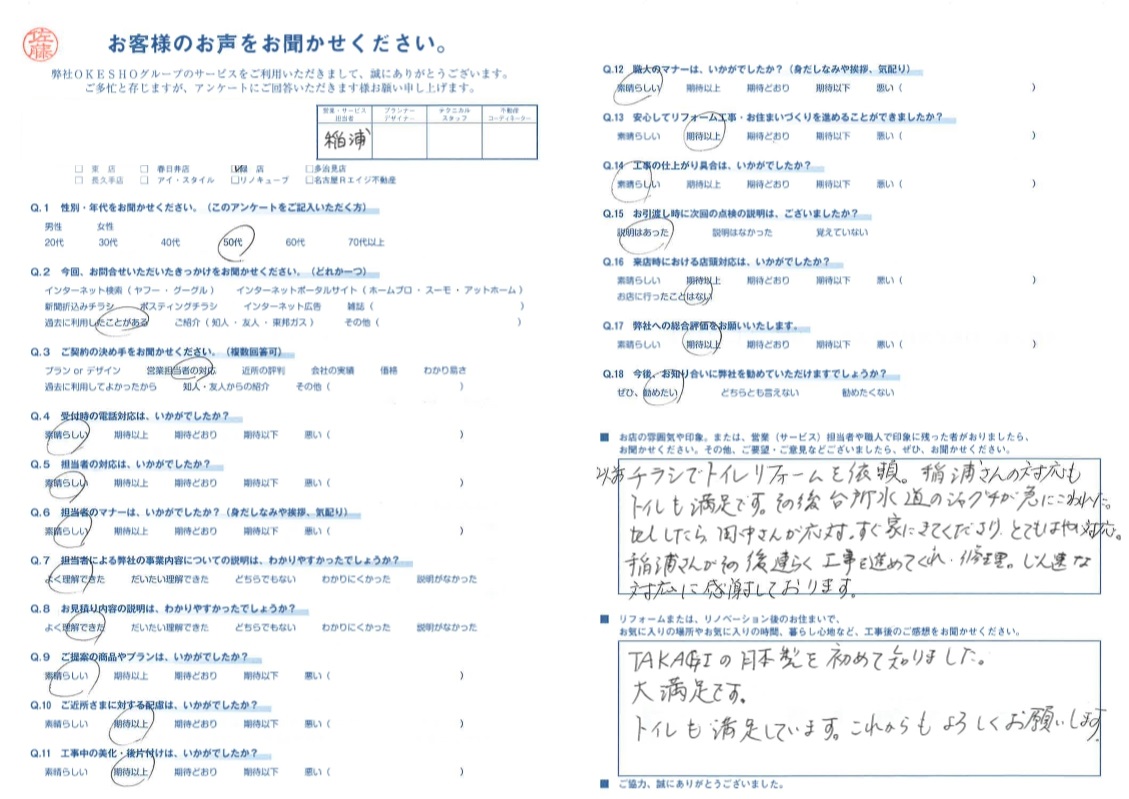 佐藤
お客様のお声をお聞かせください。
弊社OKESHOグループのサービスをご利用いただきまして、誠にありがとうございます。
ご多忙と存じますが、アンケートにご回答いただきます様お願い申し上げます。
営業・サービス担当者 プランナーデザイナー テクニカルスタッフ 不動産コーディネーター
稲浦
□ 東 店 □ 春日井店 店 □多治見店
□ 長久手店 □ アイ・スタイル □リノキューブ □名古屋Rエイジ不動産
Q.1 性別・年代をお聞かせください。（このアンケートをご記入いただく方）
男性 女性
20代 30代 40代 50代 60代 70代以上
Q.2 今回、お問合せいただいたきっかけをお聞かせください。（どれか一つ）
インターネット検索（ ヤフー ・ グーグル ） インターネットポータルサイト（ ホームプロ ・ スーモ ・ アットホーム ）
新聞折込みチラシ ポスティングチラシ インターネット広告 雑誌（ ）
過去に利用したことがある ご紹介（ 知人 ・ 友人 ・ 東邦ガス ） その他（ ）
Q.3 ご契約の決め手をお聞かせください。（複数回答可）
プラン or デザイン 営業担当者の対応 近所の評判 会社の実績 価格 わかり易さ
過去に利用してよかったから 知人・友人からの紹介 その他（ ）
Q.4 受付時の電話対応は、いかがでしたか？
素晴らしい 期待以上 期待どおり 期待以下 悪い（ ）
Q.5 担当者の対応は、いかがでしたか？
素晴らしい 期待以上 期待どおり 期待以下 悪い（ ）
Q.6 担当者のマナーは、いかがでしたか？（身だしなみや挨拶、気配り）
素晴らしい 期待以上 期待どおり 期待以下 悪い（ ）
Q.7 担当者による弊社の事業内容についての説明は、わかりやすかったでしょうか？
よく理解できた だいたい理解できた どちらでもない わかりにくかった 説明がなかった
Q.8 お見積り内容の説明は、わかりやすかったでしょうか？
よく理解できた だいたい理解できた どちらでもない わかりにくかった 説明がなかった
Q.9 ご提案の商品やプランは、いかがでしたか？
素晴らしい 期待以上 期待どおり 期待以下 悪い（ ）
Q.10 ご近所さまに対する配慮は、いかがでしたか？
素晴らしい 期待以上 期待どおり 期待以下 悪い（ ）
Q.11 工事中の美化・後片付けは、いかがでしたか？
素晴らしい 期待以上 期待どおり 期待以下 悪い（ ）
Q.12 職人のマナーは、いかがでしたか？（身だしなみや挨拶、気配り）
素晴らしい 期待以上 期待どおり 期待以下 悪い（ ）
Q.13 安心してリフォーム工事・お住まいづくりを進めることができましたか？
素晴らしい 期待以上 期待どおり 期待以下 悪い（ ）
Q.14 工事の仕上がり具合は、いかがでしたか？
素晴らしい 期待以上 期待どおり 期待以下 悪い（ ）
Q.15 お引渡し時に次回の点検の説明は、ございましたか？
説明はあった 説明はなかった 覚えていない
Q.16 来店時における店頭対応は、いかがでしたか？
素晴らしい 期待以上 期待どおり 期待以下 悪い（ ）
お店に行ったことはない
Q.17 弊社への総合評価をお願いいたします。
素晴らしい 期待以上 期待どおり 期待以下 悪い（ ）
Q.18 今後、お知り合いに弊社を勧めていただけますでしょうか？
ぜひ、勧めたい どちらとも言えない 勧めたくない
■ お店の雰囲気や印象。または、営業（サービス）担当者や職人で印象に残った者がおりましたら、
お聞かせください。その他、ご要望・ご意見などございましたら、ぜひ、お聞かせください。
以前チラシでトイレリフォームを依頼。稲浦さんの対応も
トイレも満足です。その後台所水道のジャグチが急にこわれた。
したら田中さんが応対。すぐ家にきてくださり、とてもはやい対応。
稲浦さんがその後速らく工事を進めてくれ・修理。じん速な
対応に感謝しております。
■ リフォームまたは、リノベーション後のお住まいで、
お気に入りの場所やお気に入りの時間、暮らし心地など、工事後のご感想をお聞かせください。
TAKAGIの日本製を初めて知りました。
大満足です。
トイレも満足しています。これからもよろしくお願いします
■ ご協力、誠にありがとうございました。